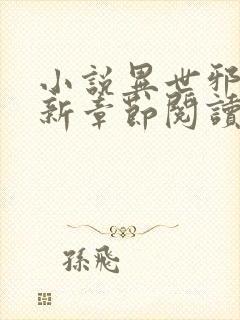 小說異世邪
新章節閱讀
孫飛